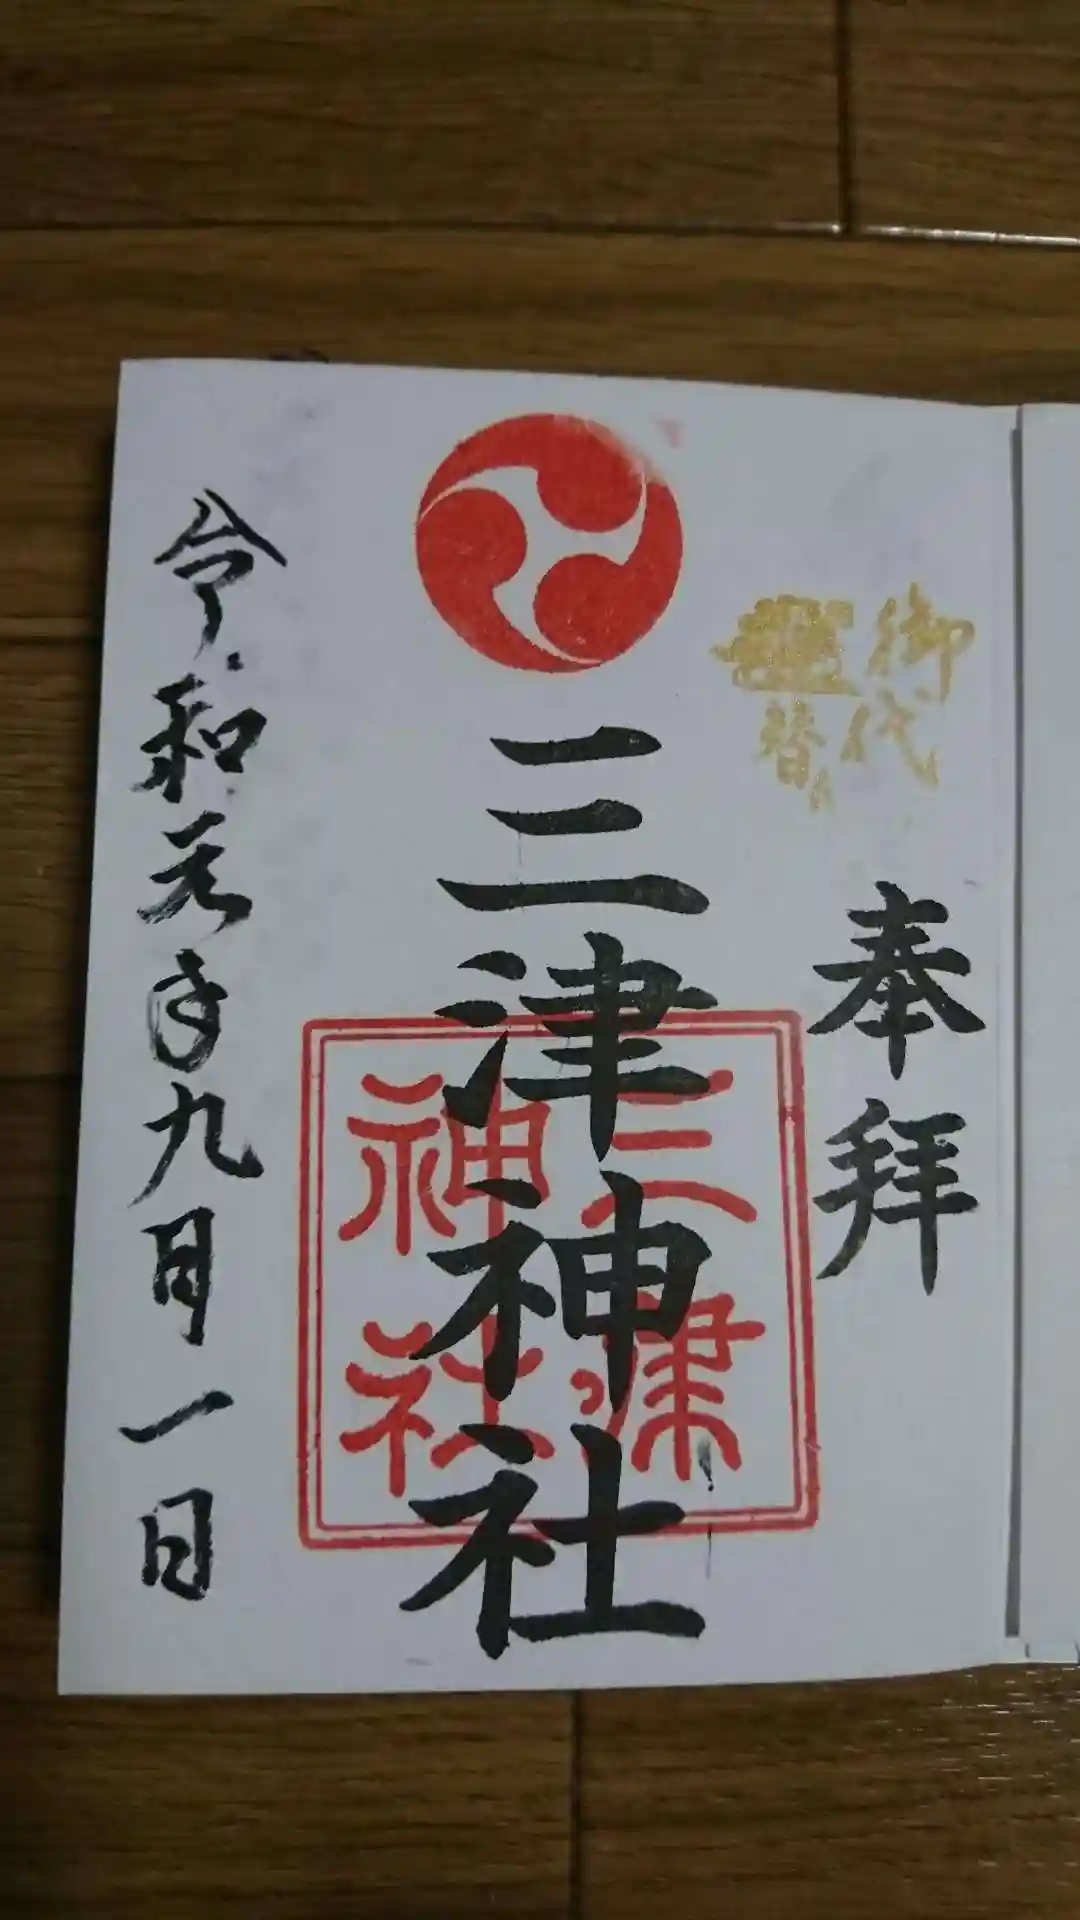 御代
替り
奉拝
三津神社
三津
神社
令和元年九月一日